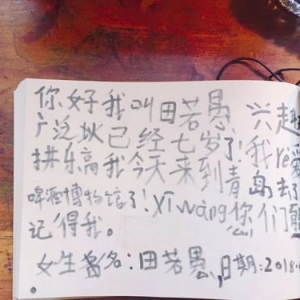 你好我叫田若愚 兴趣
广泛 已经七岁了！我 rè爱
拼乐高我今天来到青岛去
啤酒博物馆了！xīwàng你们能
记得我。
女生签名：田若愚，日期：2018